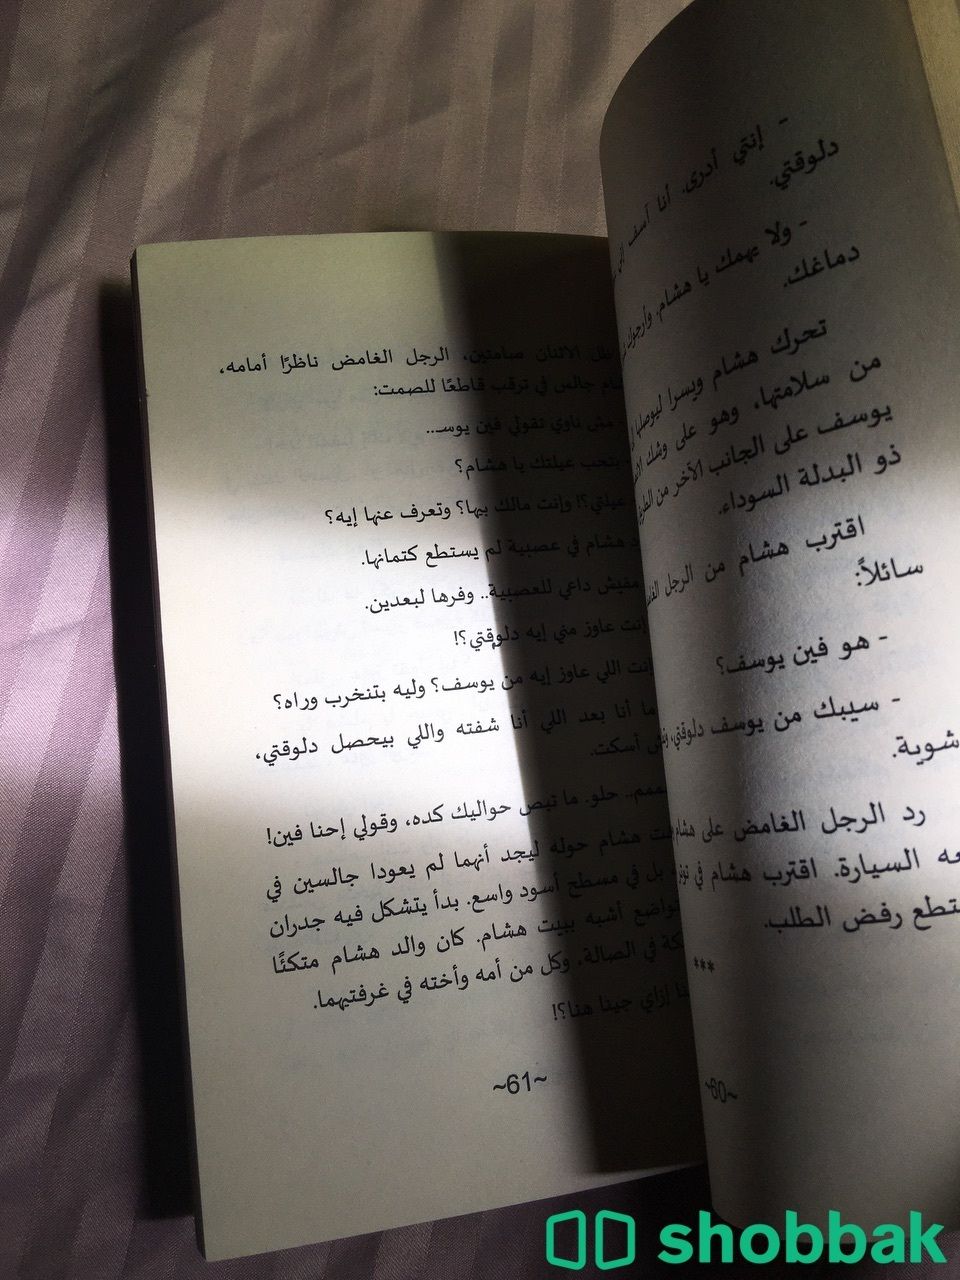 - إنتي أدرى. أنا آسف إني
دلوقتي.
- ولا يهمك يا هشام. وأرجوك
دماغك.
تحرك هشام ويسرا ليوصلها
من سلامتها، وهو على وشك
يوسف على الجانب الآخر من
ذو البدلة السوداء.
اقترب هشام من الرجل
سائلاً:
- هو فين يوسف؟
- سيبك من يوسف دلوقتي،
شوية.
رد الرجل الغامض على هشام
السيارة. اقترب هشام في
رفض الطلب.
***
~60~
ظل الاثنان صامتين، الرجل الغامض ناظرًا أمامه،
جالس في ترقب قاطعًا للصمت:
- مش ناوي تقولي فين يوسـ..
بتحب عيلتك يا هشام؟
عيلتي؟! وإنت مالك بيها؟ وتعرف عنها إيه؟
هشام في عصبية لم يستطع كتمانها.
مفيش داعي للعصبية.. وفرها لبعدين.
إنت عاوز مني إيه دلوقتي؟!
إنت اللي عاوز إيه من يوسف؟ وليه بتنخرب وراه؟
ما أنا بعد اللي أنا شفته واللي بيحصل دلوقتي،
أسكت.
حلو. ما تبص حواليك كده، وقولي إحنا فين!
هشام حوله ليجد أنهما لم يعودا جالسين في
بل في مسطح أسود واسع. بدأ يتشكل فيه جدران
أشبه ببيت هشام. كان والد هشام متكئًا
في الصالة، وكل من أمه وأخته في غرفتيهما.
إزاي جينا هنا؟!
~61~
shobbak